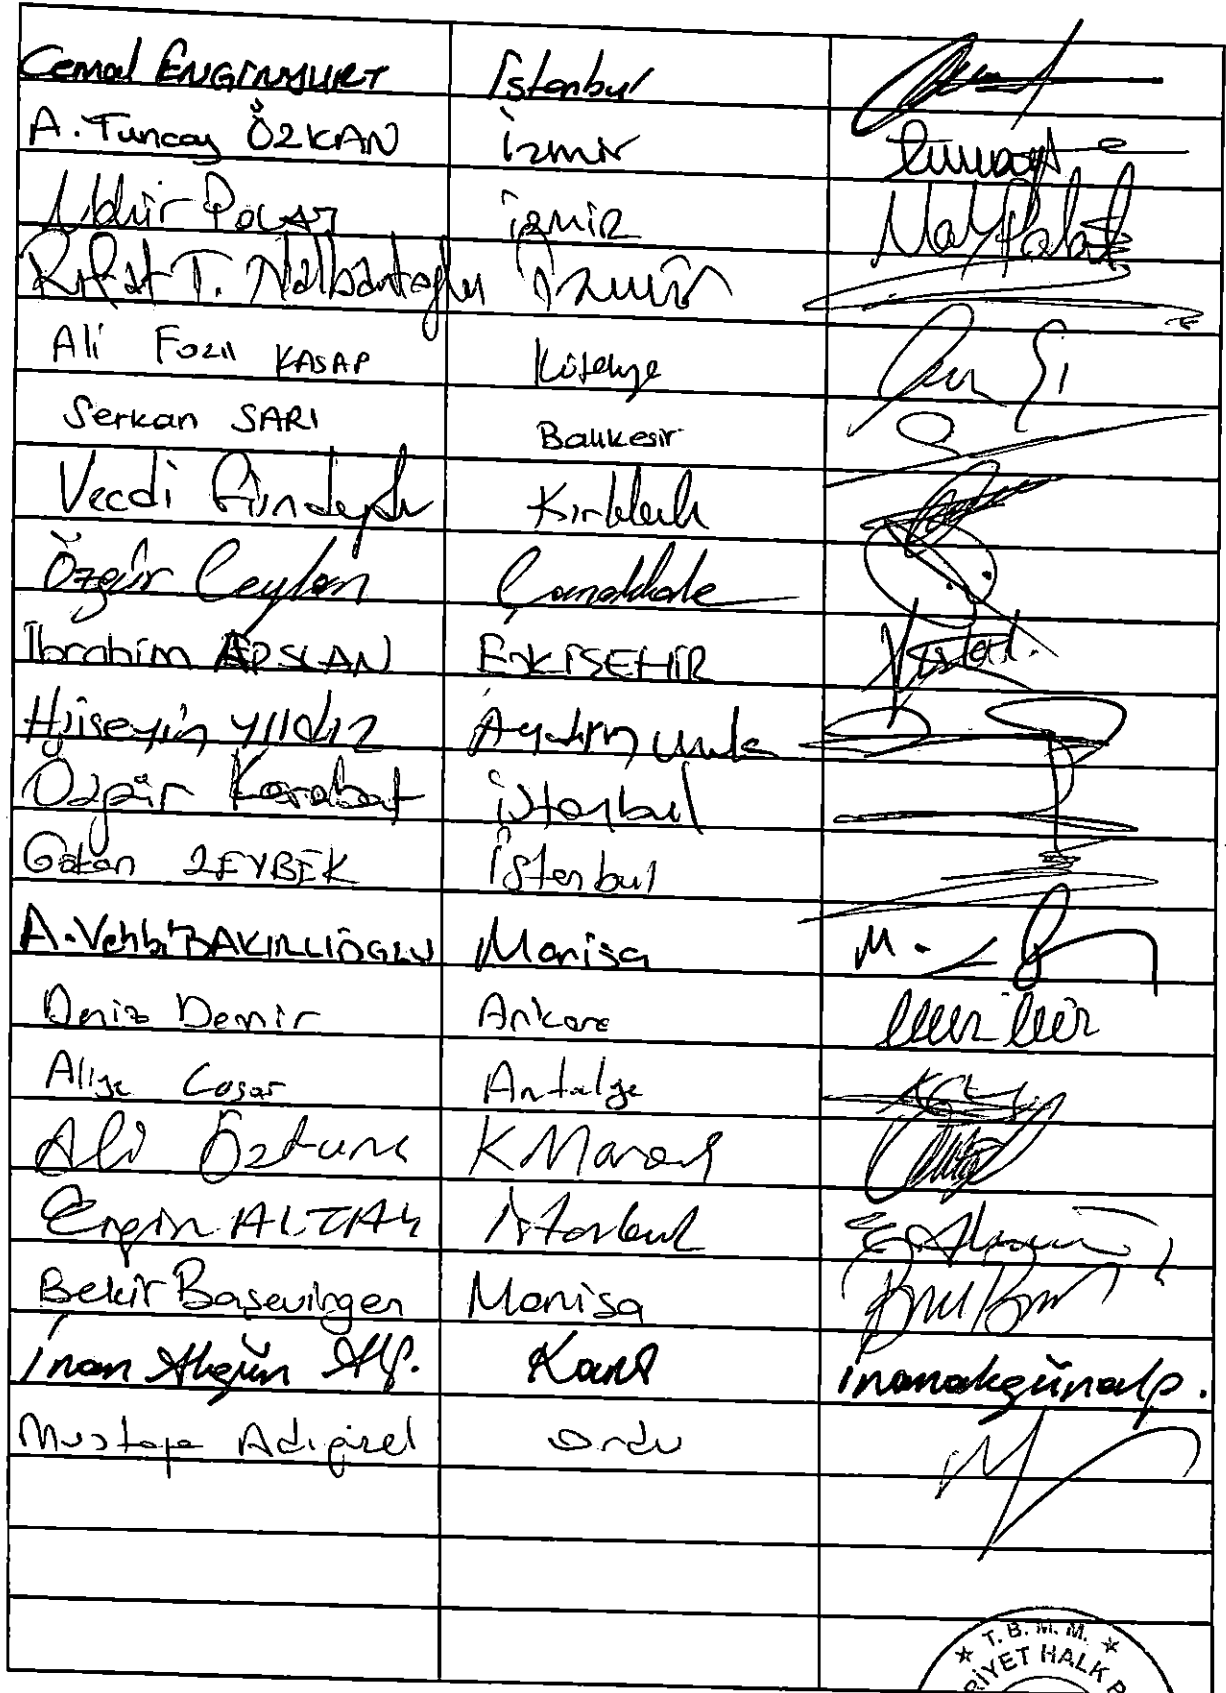 Cemal ENGİNYURT İstanbul
A. Tuncay ÖZKAN İzmir
Mahir POLAT İzmir
Rıfat T. Nalbantoğlu İzmir
Ali Fazıl KASAP Kütahya
Serkan SARI Balıkesir
Vecdi Gündoğdu Kırklareli
Özgür Ceylan Çanakkale
İbrahim ARSLAN ESKİŞEHİR
Hüseyin YILDIZ
Özgür Karabat İstanbul
Gökan ZEYBEK İstanbul
A. Vehbi BAKIRLIOĞLU Manisa
Deniz Demir Ankara
Aliye Coşar Antalya
Ali Öztunç K Maraş
Engin ALTAY İstanbul
Bekir Başevirgen Manisa
İnan Akgün Alp. Kars inanakgünalp.
Mustafa Adıgüzel Ordu
★ T.B.M.M. ★
RİYET HALK P